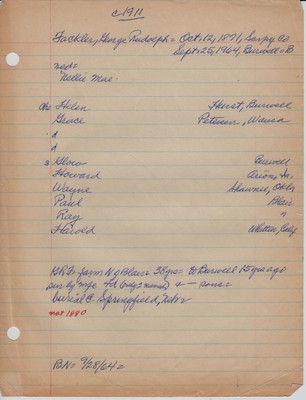 c1911
Fackler, George Rudolph = Oct. 12, 1871, Sarpy Co
Sept. 25, 1964, Burwell = B
med =
Nellie Mae
ch = Helen Hurst, Burwell
Grace Petersen, Wausa
d
d
s Glow Burwell
Howard Arion, Ia.
Wayne Shawnee, Okla
Paul Blair
Ray "
Harold Whittier, Calif
GRF = farm N of Blair = 38 yrs = to Burwell 15 yrs ago
sur by wife + d (only 2 named) & — sons =
burial @ Springfield, Nebr
not 1880
BN = 9/28/64 =